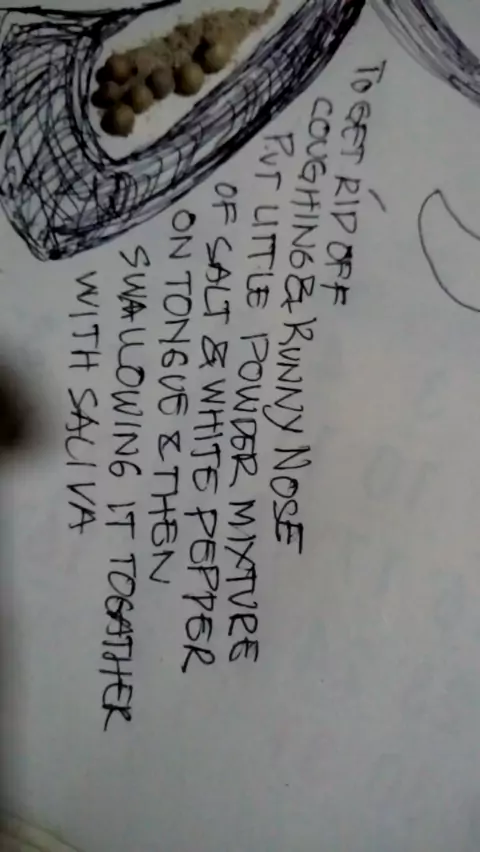 TO GET RID OFF
COUGHING & RUNNY NOSE
PUT LITTLE POWDER MIXTURE
OF SALT & WHITE PEPPER
ON TONGUE & THEN
SWALLOWING IT TOGATHER
WITH SALIVA